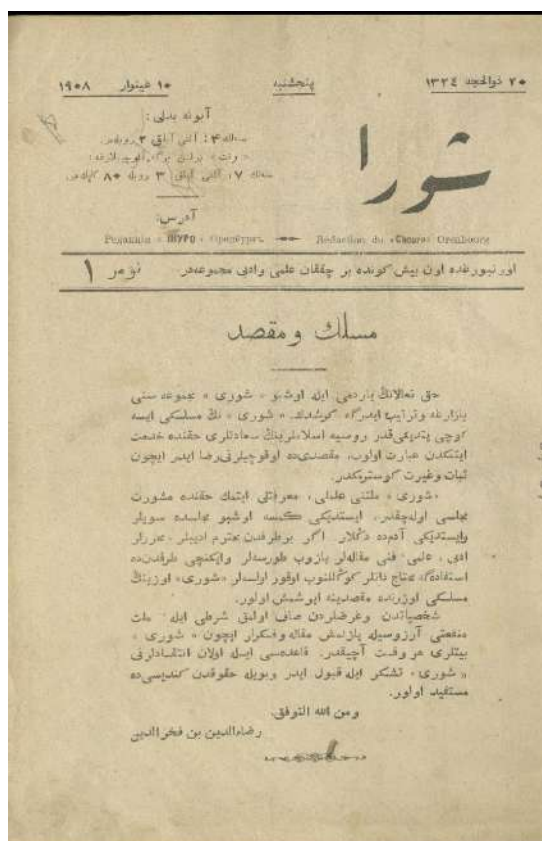 ٢٠ ذوالحجه ١٣٢٤ پنجشنبه ١٠ غينوار ١٩٠٨
آبونه بدلی:
سنەلك ٤؛ آلتی آیلق ٢ روبلەدر.
« وقت » برلەن برگە آلوچیلارغە:
سنەلك ٧؛ آلتی آیلق ٣ روبلە ٨٠ کاپك در.
آدرس:
شورا
Редакція « ШУРО » Оренбургъ. Rédaction du «Choura» Orenbourg
اورنبورغده اون بیش کونده بر چققان علمی وادبی مجموعەدر. نومر ١
مسلك ومقصد
حق تعالانڭ یاردمی ایله اوشبو « شوری » مجموعه سنی
یازارغه وترتیب ایدرگه کرشدك. « شوری » نڭ مسلکی ایسه
کوچی یتدیکی قدر روسیه اسلاملرینڭ سعادتلری حقنده خدمت
ایتکدن عبارت اولوب، مقصدی ده اوقوچیلرنی رضا ایدر ایچون
ثبات وغیرت کوسترمکدر.
«شوری» ملتنی علملی، معرفتلی ایتمك حقنده مشورت
مجلسی اولەچقدر. ایستدیکی کمسه اوشبو مجلسده سویلر
وایستدیکی آدم ده دڭلار. اگر بر طرفدن محترم ادیبلر، محررلر
ادبی، علمی، فنی مقالەلر یازوب طورسەلر وایکنچی طرفدن ده
استفادەگه محتاج ذاتلر کوڭللنوب اوقور اولسەلر «شوری» اوزینڭ
مسلکی اوزرنده مقصدینه ایرشمش اولور.
شخصیاتدن وغرضلردن صاف اولمق شرطی ایله، ملت
منفعتی آرزوسیله یازلمش مقاله وفکرلر ایچون « شوری »
بیتلری هر وقت آچیقدر. قاعدەسی ایله اولان انتقادلرنی
« شوری » تشکر ایله قبول ایدر وبویله حقوقدن کندیسی ده
مستفید اولور.
ومن الله التوفیق.
رضاءالدین بن فخرالدین